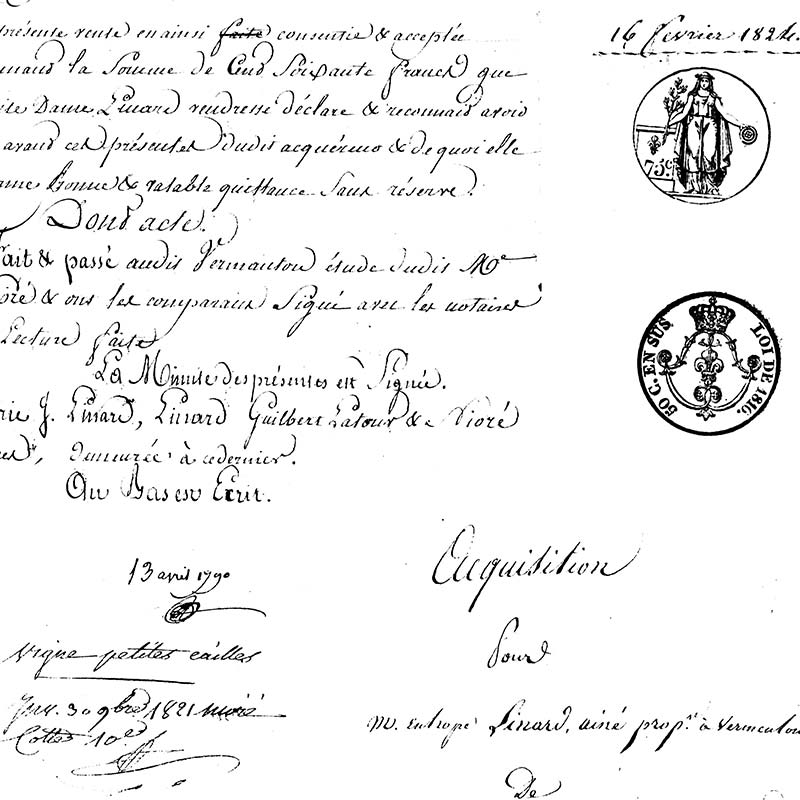 présente vente en ainsi faite consentie & acceptée
la Somme de Cent Soixante francs que
Dame Linard venderesse déclare & reconnais avoir
avant ces présentes dudit acquéreur & de quoi elle
Bonne & valable quittance Sans réserve.
Dont acte.
fait & passé audit Vermanton étude dudit Me
& ont les comparans Signé avec les notaires
Lecture faite
La Minute des présentes est Signée.
J. Linard, Linard Guilbert Latour & Vioré
demeurée à ce dernier.
Au Bas est Ecrit.
16 février 1824.
75 c.
50 C. EN SUS
LOI DE 1816.
13 avril 1790
Vigne petites cailles
Inv. 30 9bre 1821
Cotte 10e
Acquisition
Pour
M. Eutrope Linard, ainé propre. à Vermenton
De